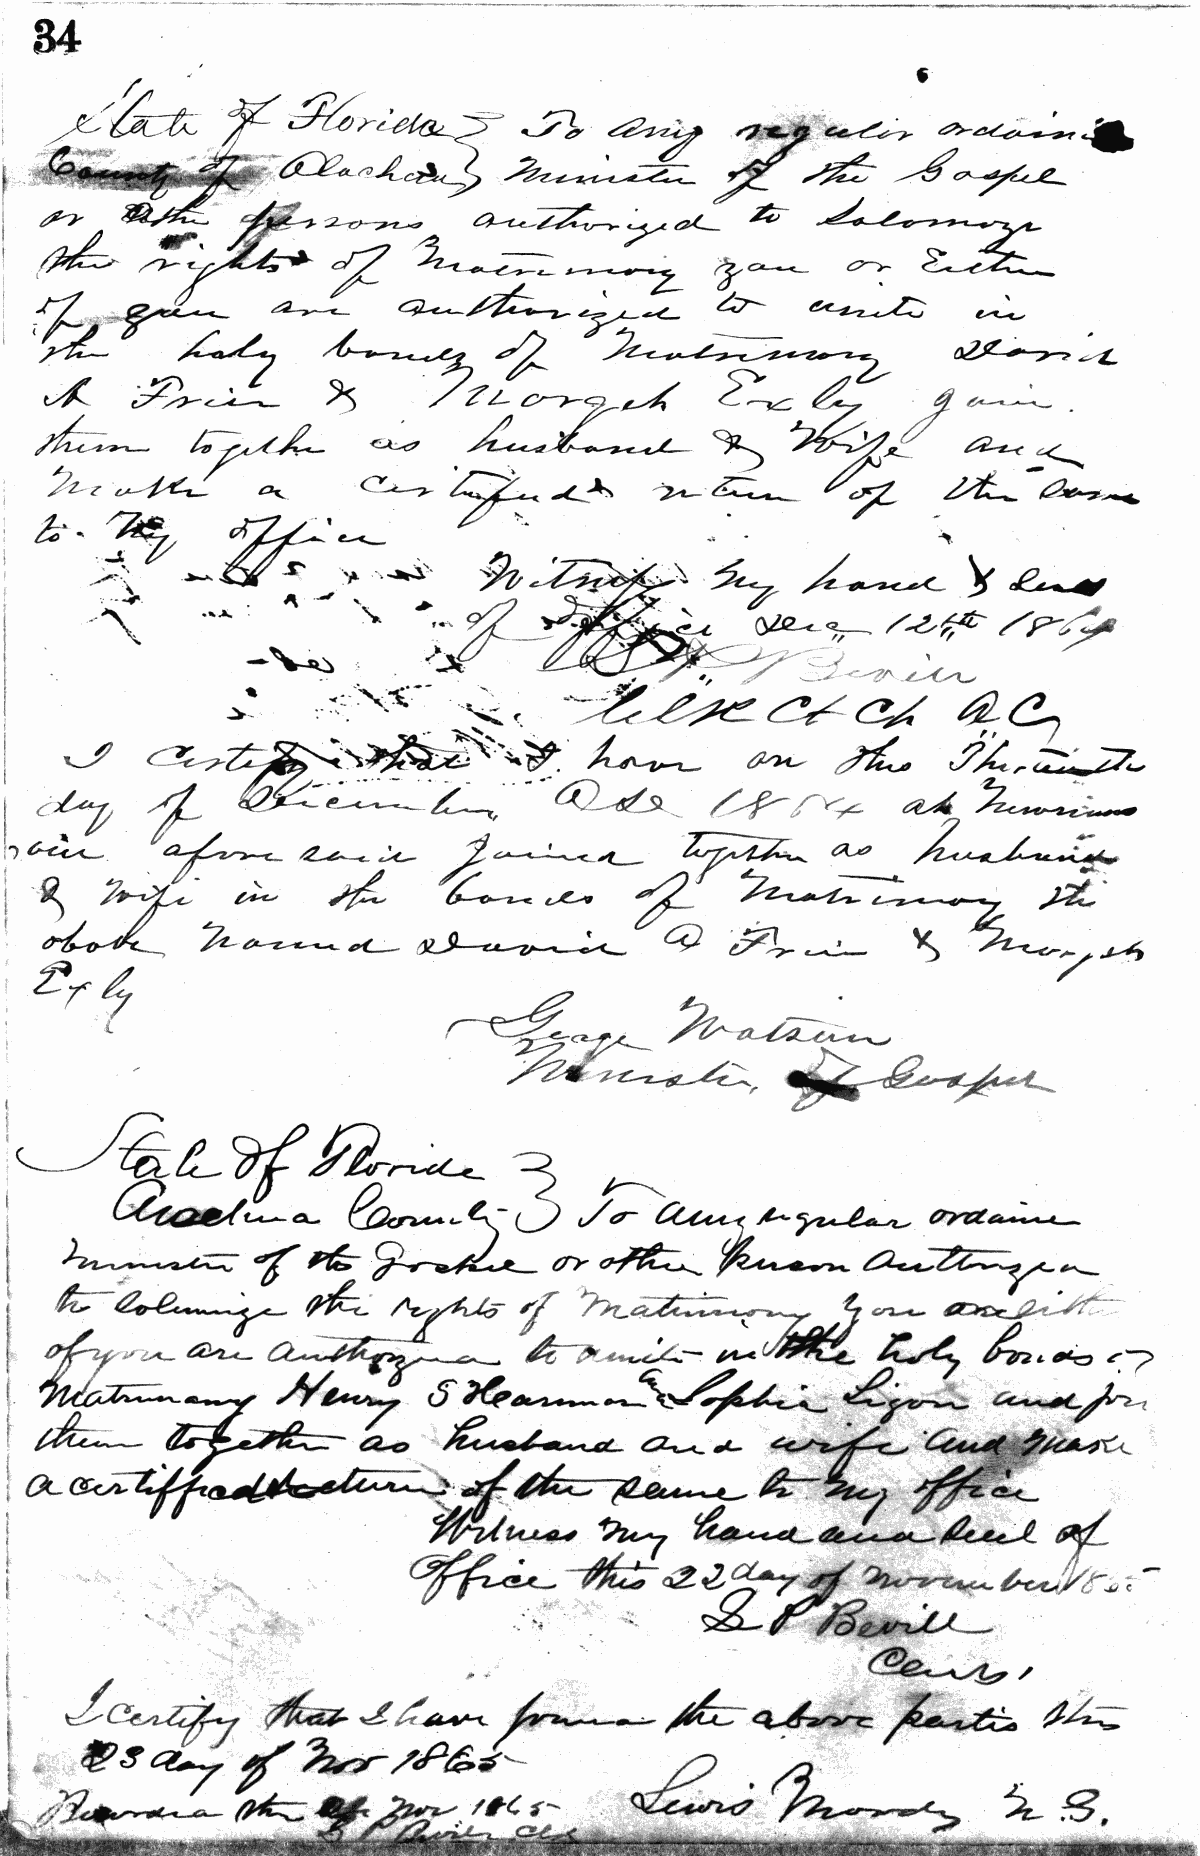 34
State of Florida } To any regular ordained
County of Alachua } Minister of the Gospel
or other persons authorized to Solomnze
the rights of Matrimony you or Either
of you are authorized to unite in
the holy bonds of Matrimony David
A Frier & Morgeh Exly join
them together as husband & Wife and
Make a certified return of the Same
to My office
Witness My hand & Seal
of office Dec 12th 1864
S P Bevill
Clk Ct Ch A C
I certify that I have on this Thirteenth
day of December A D 1864 at
afore said joined together as husband
& wife in the bonds of Matrimony the
above Named David A Frier & Morgeh
Exly
George Watson
Minister of Gospel
State of Florida }
Alachua County } To any regular ordained
minister of the Gospel or other person Authorized
to Solemnize the rights of Matrimony You are either
of you are Authorized to unite in the holy bonds of
Matrimony Henry S Hearnson and Sophia Ligon and join
them together as husband and wife and Make
a certiffied return of the same to my office
Witness my hand and Seal of
Office this 22 day of November 1865
S P Bevill
Clerk
I certify that I have joined the above parties this
23 day of Nov 1865
Lewis Moody M.G.
Recorded the Nov 1865
S P Bevill Clk